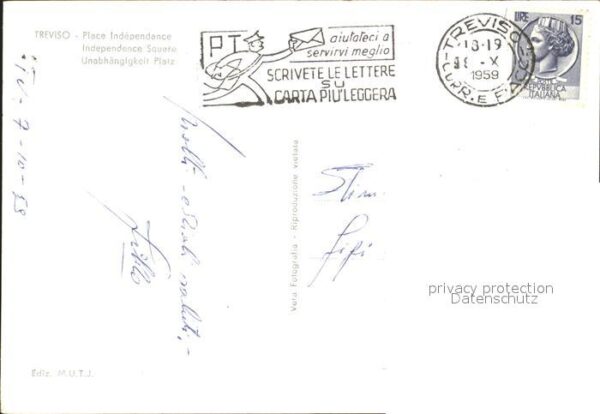 TREVISO - Place Indépendance
Independence Square
Unabhänglgkeit Platz
PT
aiutateci a
servirvi meglio
SCRIVETE LE LETTERE
SU
CARTA PIU' LEGGERA
TREVISO
18-19
X
1959
CORR. E
LIRE 15
REPVBBLICA
ITALIANA
TV. 7-10-59
Molti cordiali saluti,-
Vera Fotografia - Riproduzione vietata
privacy protection
Datenschutz
Ediz. M.U.T.J.